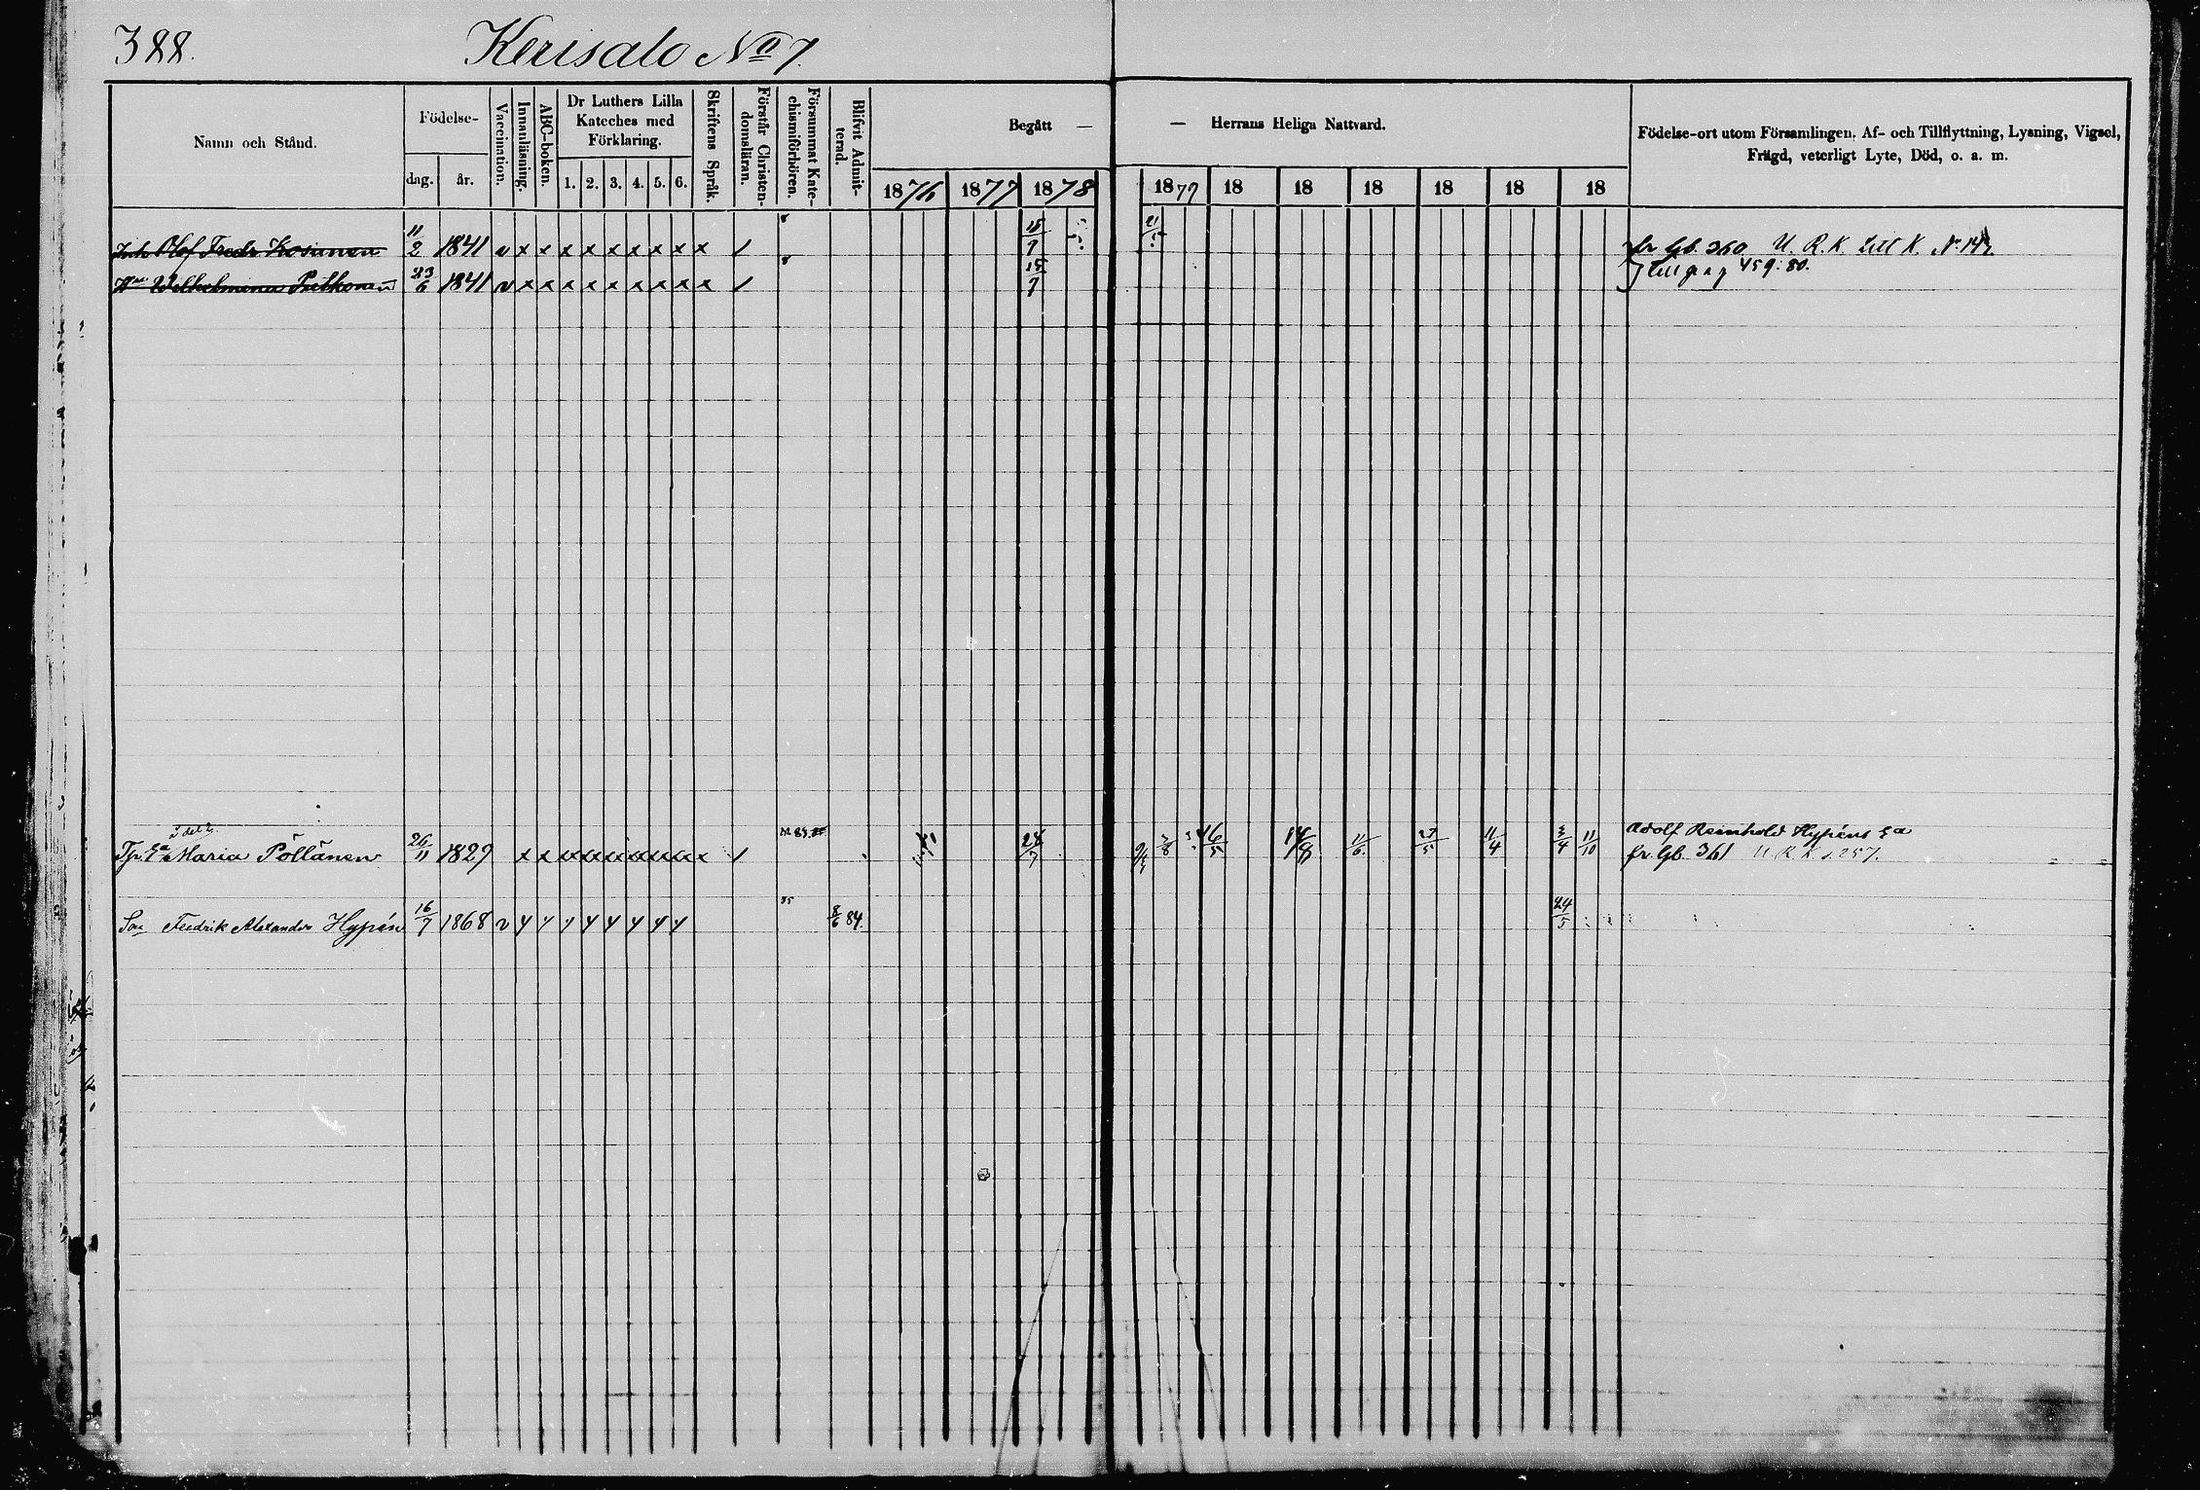 388. Kerisalo No 7.
Namn och Stånd.
Födelse-
dag. år.
Vaccination.
Innanläsning.
ABC-boken.
Dr Luthers Lilla
Kateches med
Förklaring.
1. 2. 3. 4. 5. 6.
Skriftens Språk.
Förstår Christen-
domsläran.
Försummat Kate-
chismiförhören.
Blifvit Admit-
terad.
Begått —
— Herrans Heliga Nattvard.
1876 1877 1878 1879 18 18 18 18 18 18
Födelse-ort utom Församlingen. Af- och Tillflyttning, Lysning, Vigsel,
Frägd, veterligt Lyte, Död, o. a. m.
Inh Olof Fredr Kosunen 11/2 1841 v x x x x x x x x x / 15/7 21/5 fr Gb. 360 U. R. K. Litt K. No
Wilhelmina 23/6 1841 v x x x x x x x x x / 15/7 459. 80.
Maria Pöllänen 26/11 1829 x x / 28/7 3/8 16/5 14/8 11/6 27/5 11/4 3/4 11/10 Adolf Reinhold Hypéns
fr. Gb. 361 U. R. K. s. 257.
Son Fredrik Alexander Hypén 16/7 1868 v y y y y y y y y 85 8/6 84. 24/5